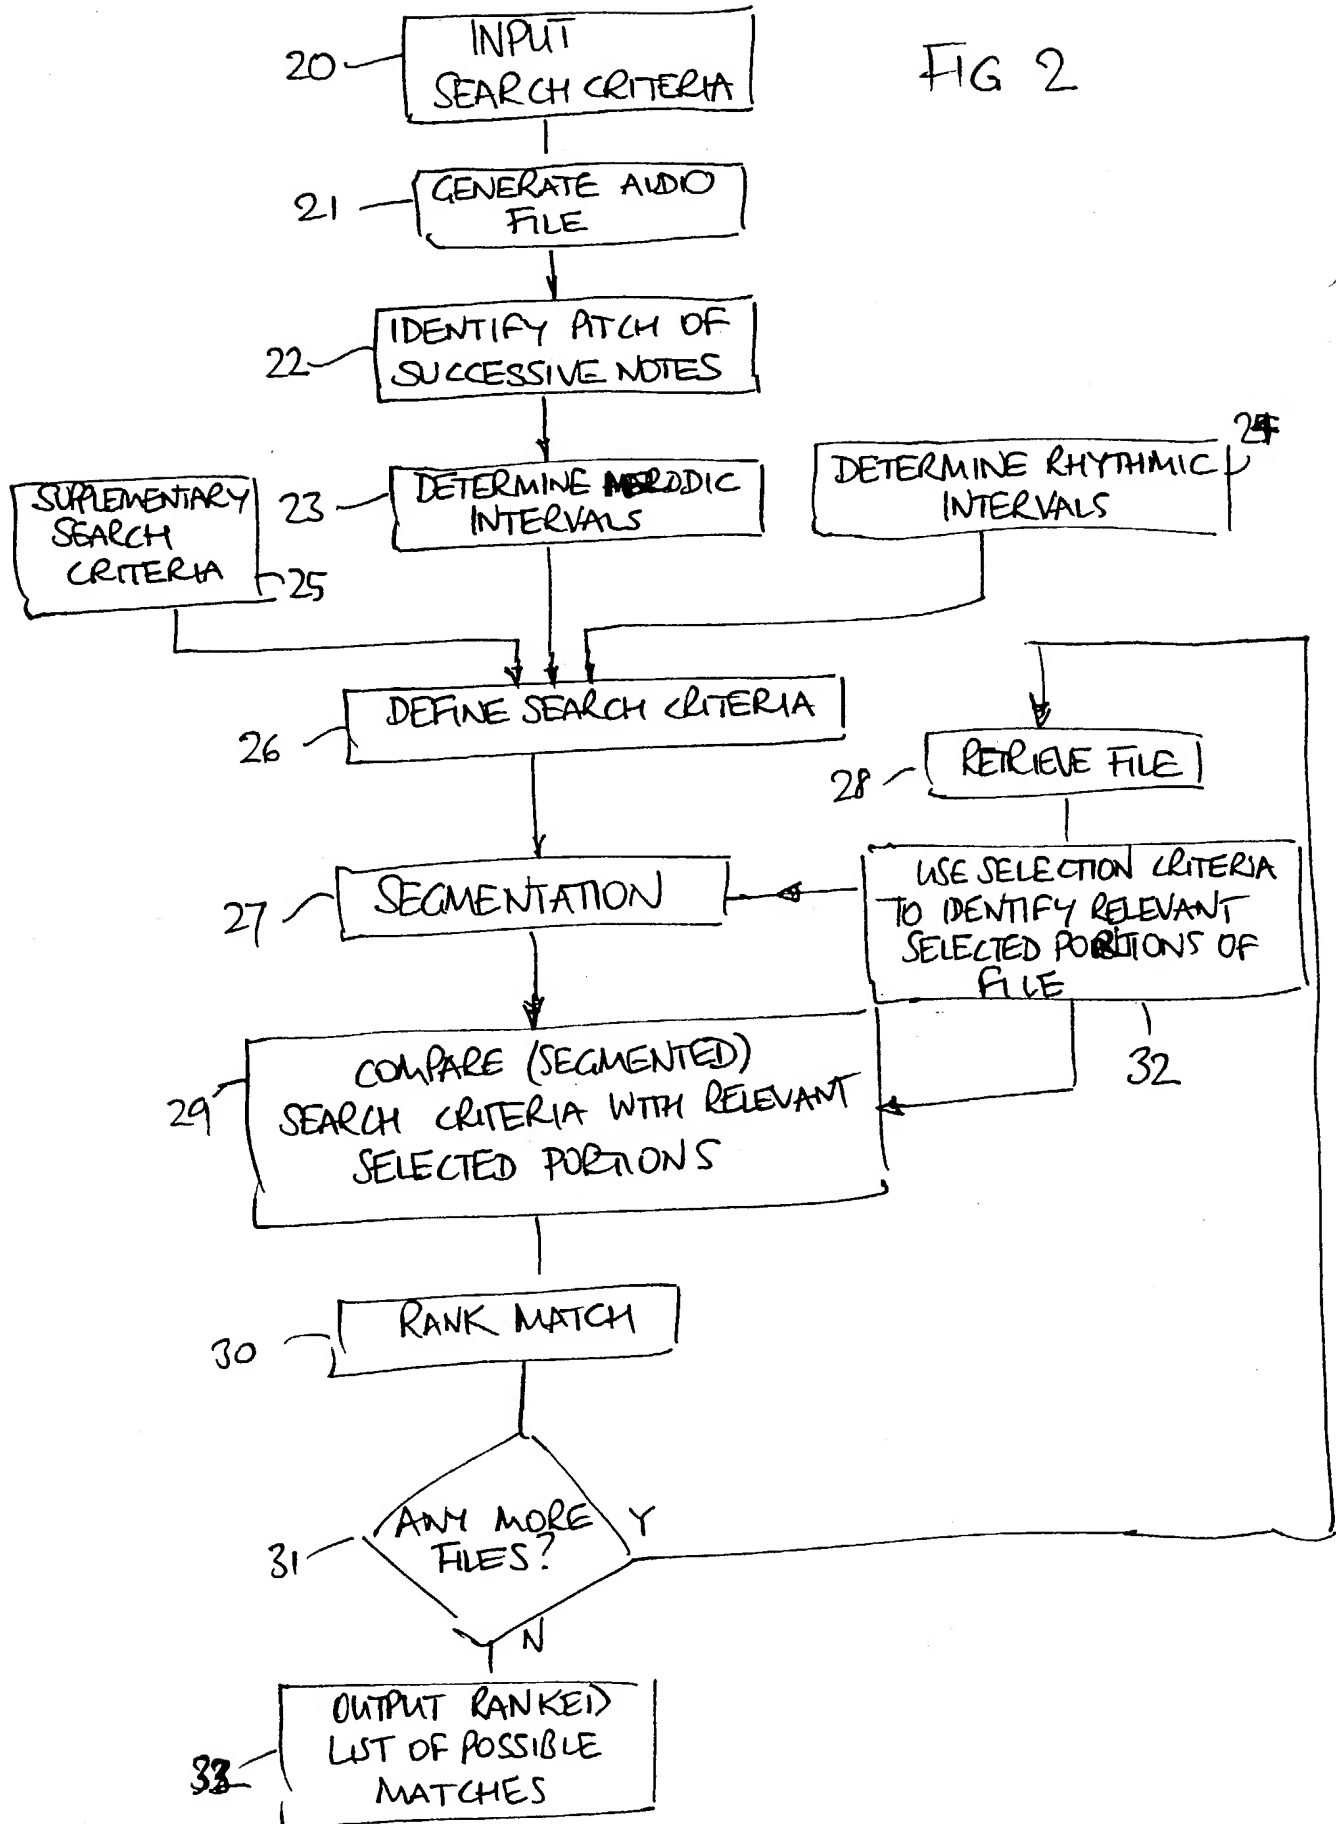 FIG 2
20
INPUT
SEARCH CRITERIA
21
GENERATE AUDIO
FILE
22
IDENTIFY PITCH OF
SUCCESSIVE NOTES
SUPPLEMENTARY
SEARCH
CRITERIA
25
23
DETERMINE MELODIC
INTERVALS
24
DETERMINE RHYTHMIC
INTERVALS
26
DEFINE SEARCH CRITERIA
28
RETRIEVE FILE
27
SEGMENTATION
USE SELECTION CRITERIA
TO IDENTIFY RELEVANT
SELECTED PORTIONS OF
FILE
32
29
COMPARE (SEGMENTED)
SEARCH CRITERIA WITH RELEVANT
SELECTED PORTIONS
30
RANK MATCH
31
ANY MORE
FILES?
Y
N
33
OUTPUT RANKED
LIST OF POSSIBLE
MATCHES